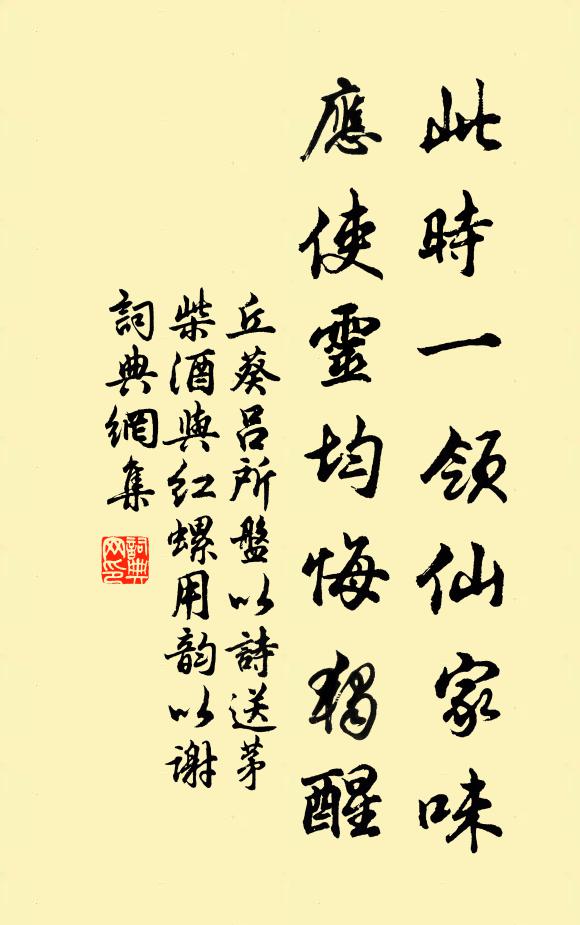 此時一領仙家味
應使靈均悔獨醒
丘葵呂所盤以詩送茅
柴酒與紅螺用韵以謝
詞典網集
詞典
网印